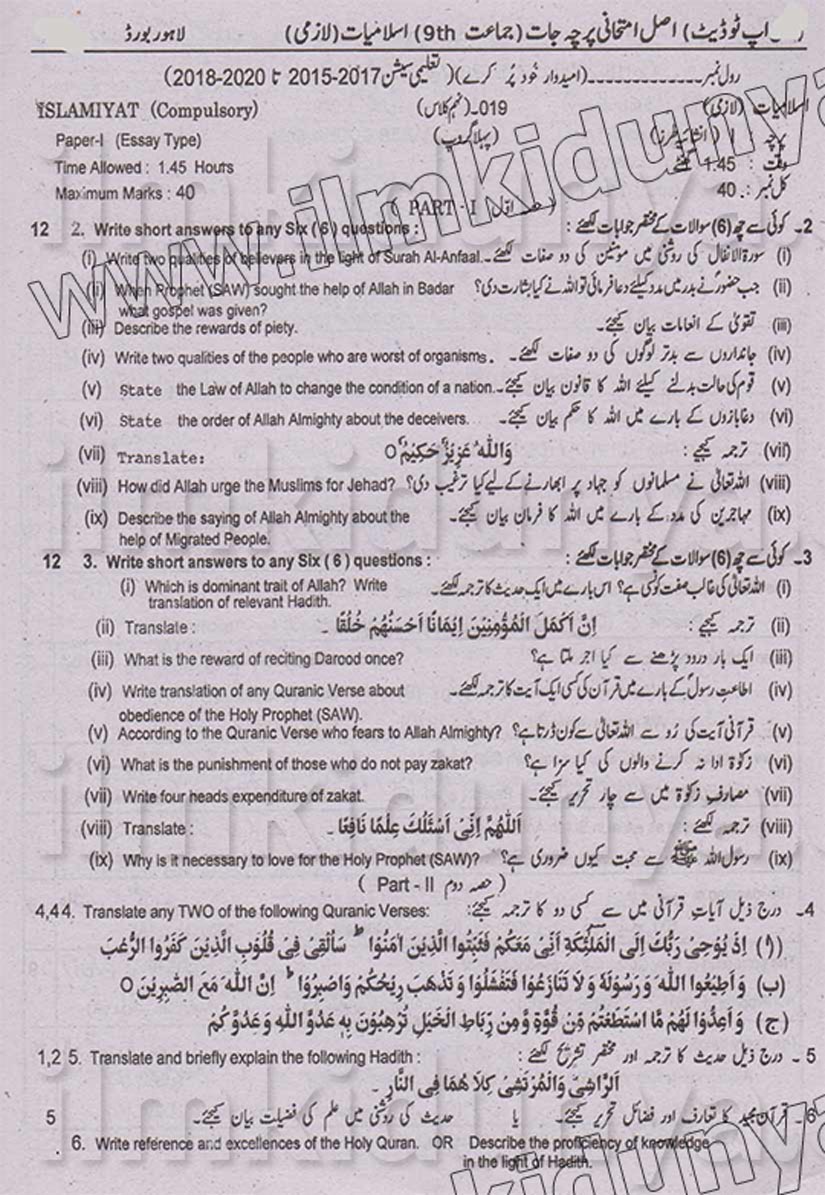 اپ ٹو ڈیٹ) اصل امتحانی پرچہ جات (جماعت 9th) اسلامیات (لازمی) لاہور بورڈ
رول نمبر ------------ (امیدوار خود پُر کرے) (تعلیمی سیشن 2017-2015 تا 2020-2018)
ISLAMIYAT (Compulsory) 019-(نہم کلاس) اسلامیات (لازمی)
Paper-I (Essay Type) (پہلا گروپ) پرچہ : I (انشائیہ طرز)
Time Allowed : 1.45 Hours وقت : 1.45 گھنٹے
Maximum Marks : 40 کل نمبر : 40
( PART - I حصہ اول )
12 2. Write short answers to any Six ( 6 ) questions : 2۔ کوئی سے چھ (6) سوالات کے مختصر جوابات لکھئے :
(i) Write two qualities of believers in the light of Surah Al-Anfaal. (i) سورۃ الانفال کی روشنی میں مومنین کی دو صفات لکھئے۔
(ii) When Prophet (SAW) sought the help of Allah in Badar (ii) جب حضورؐ نے بدر میں مدد کیلئے دعا فرمائی تو اللہ نے کیا بشارت دی؟
what gospel was given?
(iii) Describe the rewards of piety. (iii) تقویٰ کے انعامات بیان کیجئے۔
(iv) Write two qualities of the people who are worst of organisms. (iv) جانداروں سے بدتر لوگوں کی دو صفات لکھئے۔
(v) State the Law of Allah to change the condition of a nation. (v) قوم کی حالت بدلنے کیلئے اللہ کا قانون بیان کیجئے۔
(vi) State the order of Allah Almighty about the deceivers. (vi) دغابازوں کے بارے میں اللہ کا حکم بیان کیجئے۔
(vii) Translate: (vii) ترجمہ کیجیے : وَاللّٰهُ عَزِیْزٌ حَكِیْمٌ ۝
(viii) How did Allah urge the Muslims for Jehad? (viii) اللہ تعالیٰ نے مسلمانوں کو جہاد پر ابھارنے کے لیے کیا ترغیب دی؟
(ix) Describe the saying of Allah Almighty about the (ix) مہاجرین کی مدد کے بارے میں اللہ کا فرمان بیان کیجئے۔
help of Migrated People.
12 3. Write short answers to any Six ( 6 ) questions : 3۔ کوئی سے چھ (6) سوالات کے مختصر جوابات لکھئے :
(i) Which is dominant trait of Allah? Write (i) اللہ تعالیٰ کی غالب صفت کونسی ہے؟ اس بارے میں ایک حدیث کا ترجمہ لکھئے۔
translation of relevant Hadith.
(ii) Translate : (ii) ترجمہ کیجیے : اِنَّ اَكْمَلَ الْمُؤْمِنِیْنَ اِیْمَانًا اَحْسَنُهُمْ خُلُقًا ۔
(iii) What is the reward of reciting Darood once? (iii) ایک بار درود پڑھنے سے کیا اجر ملتا ہے؟
(iv) Write translation of any Quranic Verse about (iv) اطاعتِ رسولؐ کے بارے میں قرآن کی کسی ایک آیت کا ترجمہ لکھئے۔
obedience of the Holy Prophet (SAW).
(v) According to the Quranic Verse who fears to Allah Almighty? (v) قرآنی آیت کی رُو سے اللہ تعالیٰ سے کون ڈرتا ہے؟
(vi) What is the punishment of those who do not pay zakat? (vi) زکوٰۃ ادا نہ کرنے والوں کی کیا سزا ہے؟
(vii) Write four heads expenditure of zakat. (vii) مصارفِ زکوٰۃ میں سے چار تحریر کیجئے۔
(viii) Translate : (viii) ترجمہ لکھئے : اَللّٰهُمَّ اِنِّیْ اَسْئَلُكَ عِلْمًا نَافِعًا ۔
(ix) Why is it necessary to love for the Holy Prophet (SAW)? (ix) رسول اللہ ﷺ سے محبت کیوں ضروری ہے؟
( Part - II حصہ دوم )
4,4 4. Translate any TWO of the following Quranic Verses: 4۔ درج ذیل آیاتِ قرآنی میں سے کسی دو کا ترجمہ کیجیئے :
(ا) اِذْ یُوْحِیْ رَبُّكَ اِلَی الْمَلٰٓئِكَةِ اَنِّیْ مَعَكُمْ فَثَبِّتُوا الَّذِیْنَ اٰمَنُوْا ؕ سَاُلْقِیْ فِیْ قُلُوْبِ الَّذِیْنَ كَفَرُوا الرُّعْبَ
(ب) وَ اَطِیْعُوا اللّٰهَ وَ رَسُوْلَهٗ وَ لَا تَنَازَعُوْا فَتَفْشَلُوْا وَ تَذْهَبَ رِیْحُكُمْ وَ اصْبِرُوْا ؕ اِنَّ اللّٰهَ مَعَ الصّٰبِرِیْنَ ۝
(ج) وَ اَعِدُّوْا لَهُمْ مَّا اسْتَطَعْتُمْ مِّنْ قُوَّةٍ وَّ مِنْ رِّبَاطِ الْخَیْلِ تُرْهِبُوْنَ بِهٖ عَدُوَّ اللّٰهِ وَ عَدُوَّكُمْ
1,2 5. Translate and briefly explain the following Hadith : 5 ۔ درج ذیل حدیث کا ترجمہ اور مختصر تشریح لکھئے :
اَلرَّاشِیْ وَالْمُرْتَشِیْ كِلَا هُمَا فِی النَّارِ ۔
5 6۔ قرآن مجید کا تعارف اور فضائل تحریر کیجئے۔ یا حدیث کی روشنی میں علم کی فضیلت بیان کیجئے۔
6. Write reference and excellences of the Holy Quran. OR Describe the proficiency of knowledge
in the light of Hadith.
www.ilmkidunya
ilmkidunya
ilmkidunya
ilmkidunya
ilmkidunya
kidunya